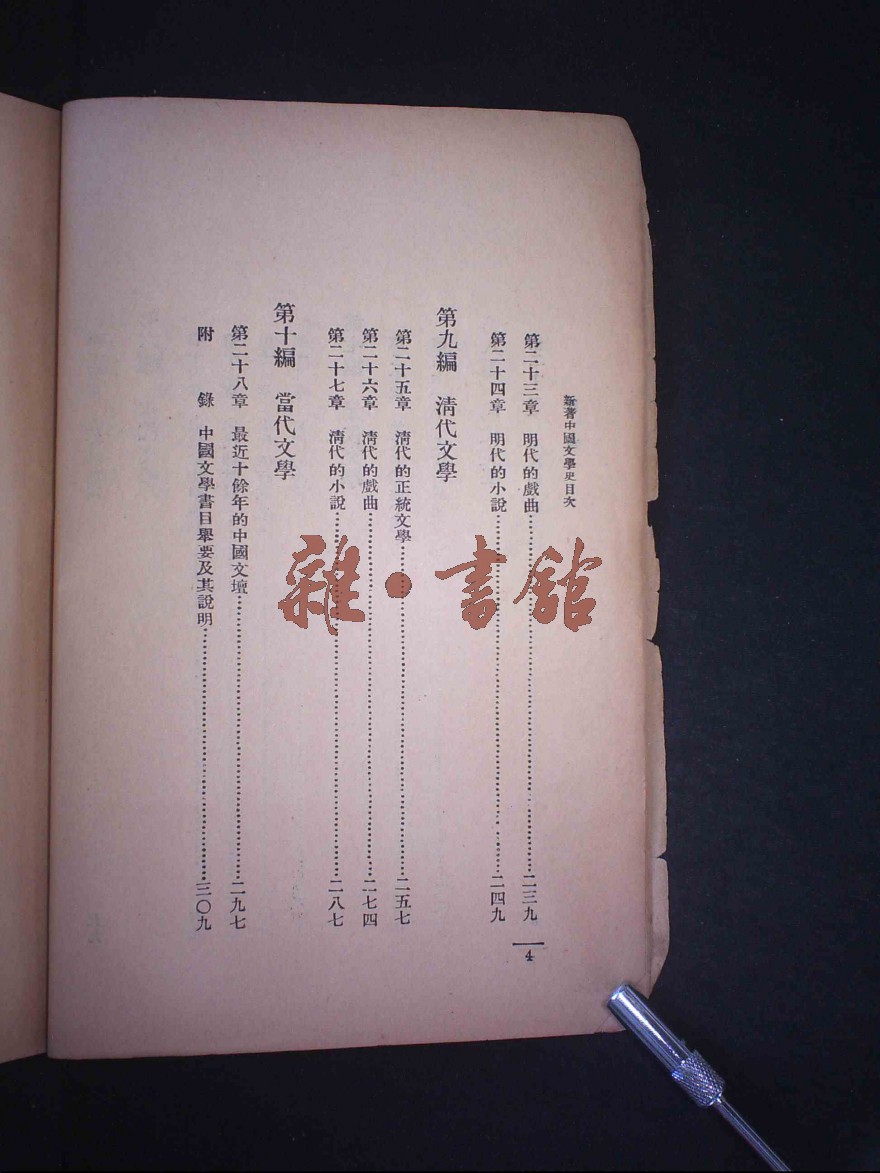 新著中國文學史目次
第二十三章　明代的戲曲……二三九
第二十四章　明代的小說……二四九
第九編　清代文學
第二十五章　清代的正統文學……二五七
第二十六章　清代的戲曲……二七四
第二十七章　清代的小說……二八七
第十編　當代文學
第二十八章　最近十餘年的中國文壇……二九七
附　錄　中國文學書目舉要及其說明……三〇九
4
雜·書館